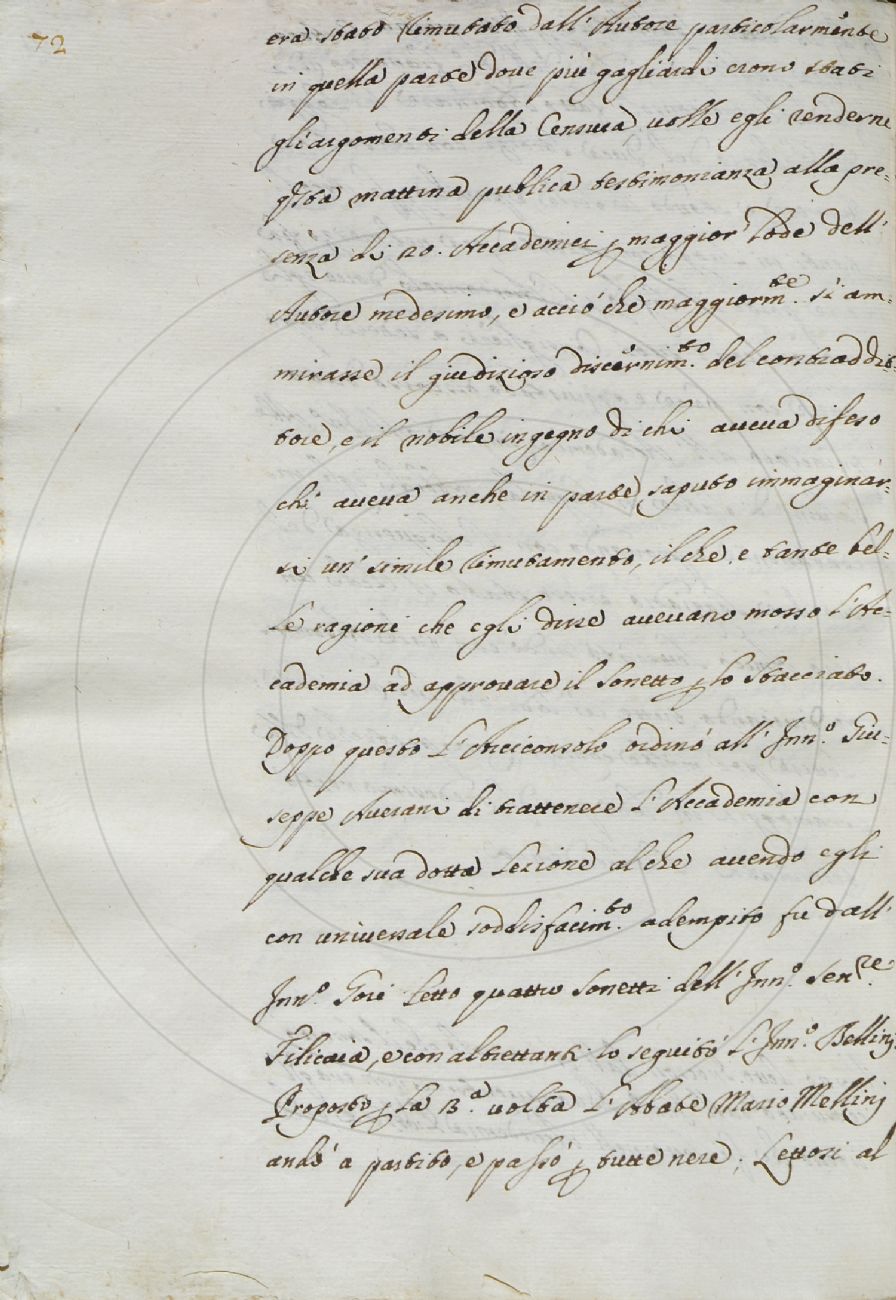 72
era stato rimutato dall'Autore particolarmente
in quella parte dove più gagliardi erono stati
gli argomenti della Censura, volle egli renderne
q.sta mattina publica testimonianza alla pre-
senza di 20. Accademici p maggior lode dell'
Autore medesimo, e acciò che maggiorm.te si am-
mirasse il giudizioso discernim.to del contraddit-
tore, e il nobile ingegno di chi aveva difeso
chi aveva anche in parte saputo immaginar-
si un' simile rimutamento, il che e tante bel-
le ragioni che egli disse avevano mosso l'Ac-
cademia ad approvare il sonetto p lo stacciato.
Doppo questo l'Arciconsolo ordinò all' Inn.o Giu-
seppe Averani di trattenere l'Accademia con
qualche sua dotta Lezione al che avendo egli
con universale soddisfacim.to adempito fu dall'
Inn.o Gori letto quattro sonetti dell' Inn.o Sen.re
Filicaia, e con altrettanti lo seguitò l'Inn.o Bellinj
Proposto p la 13.a volta l'Abate Mario Mellinj
andò a partito, e passò p tutte nere; Lettosi al